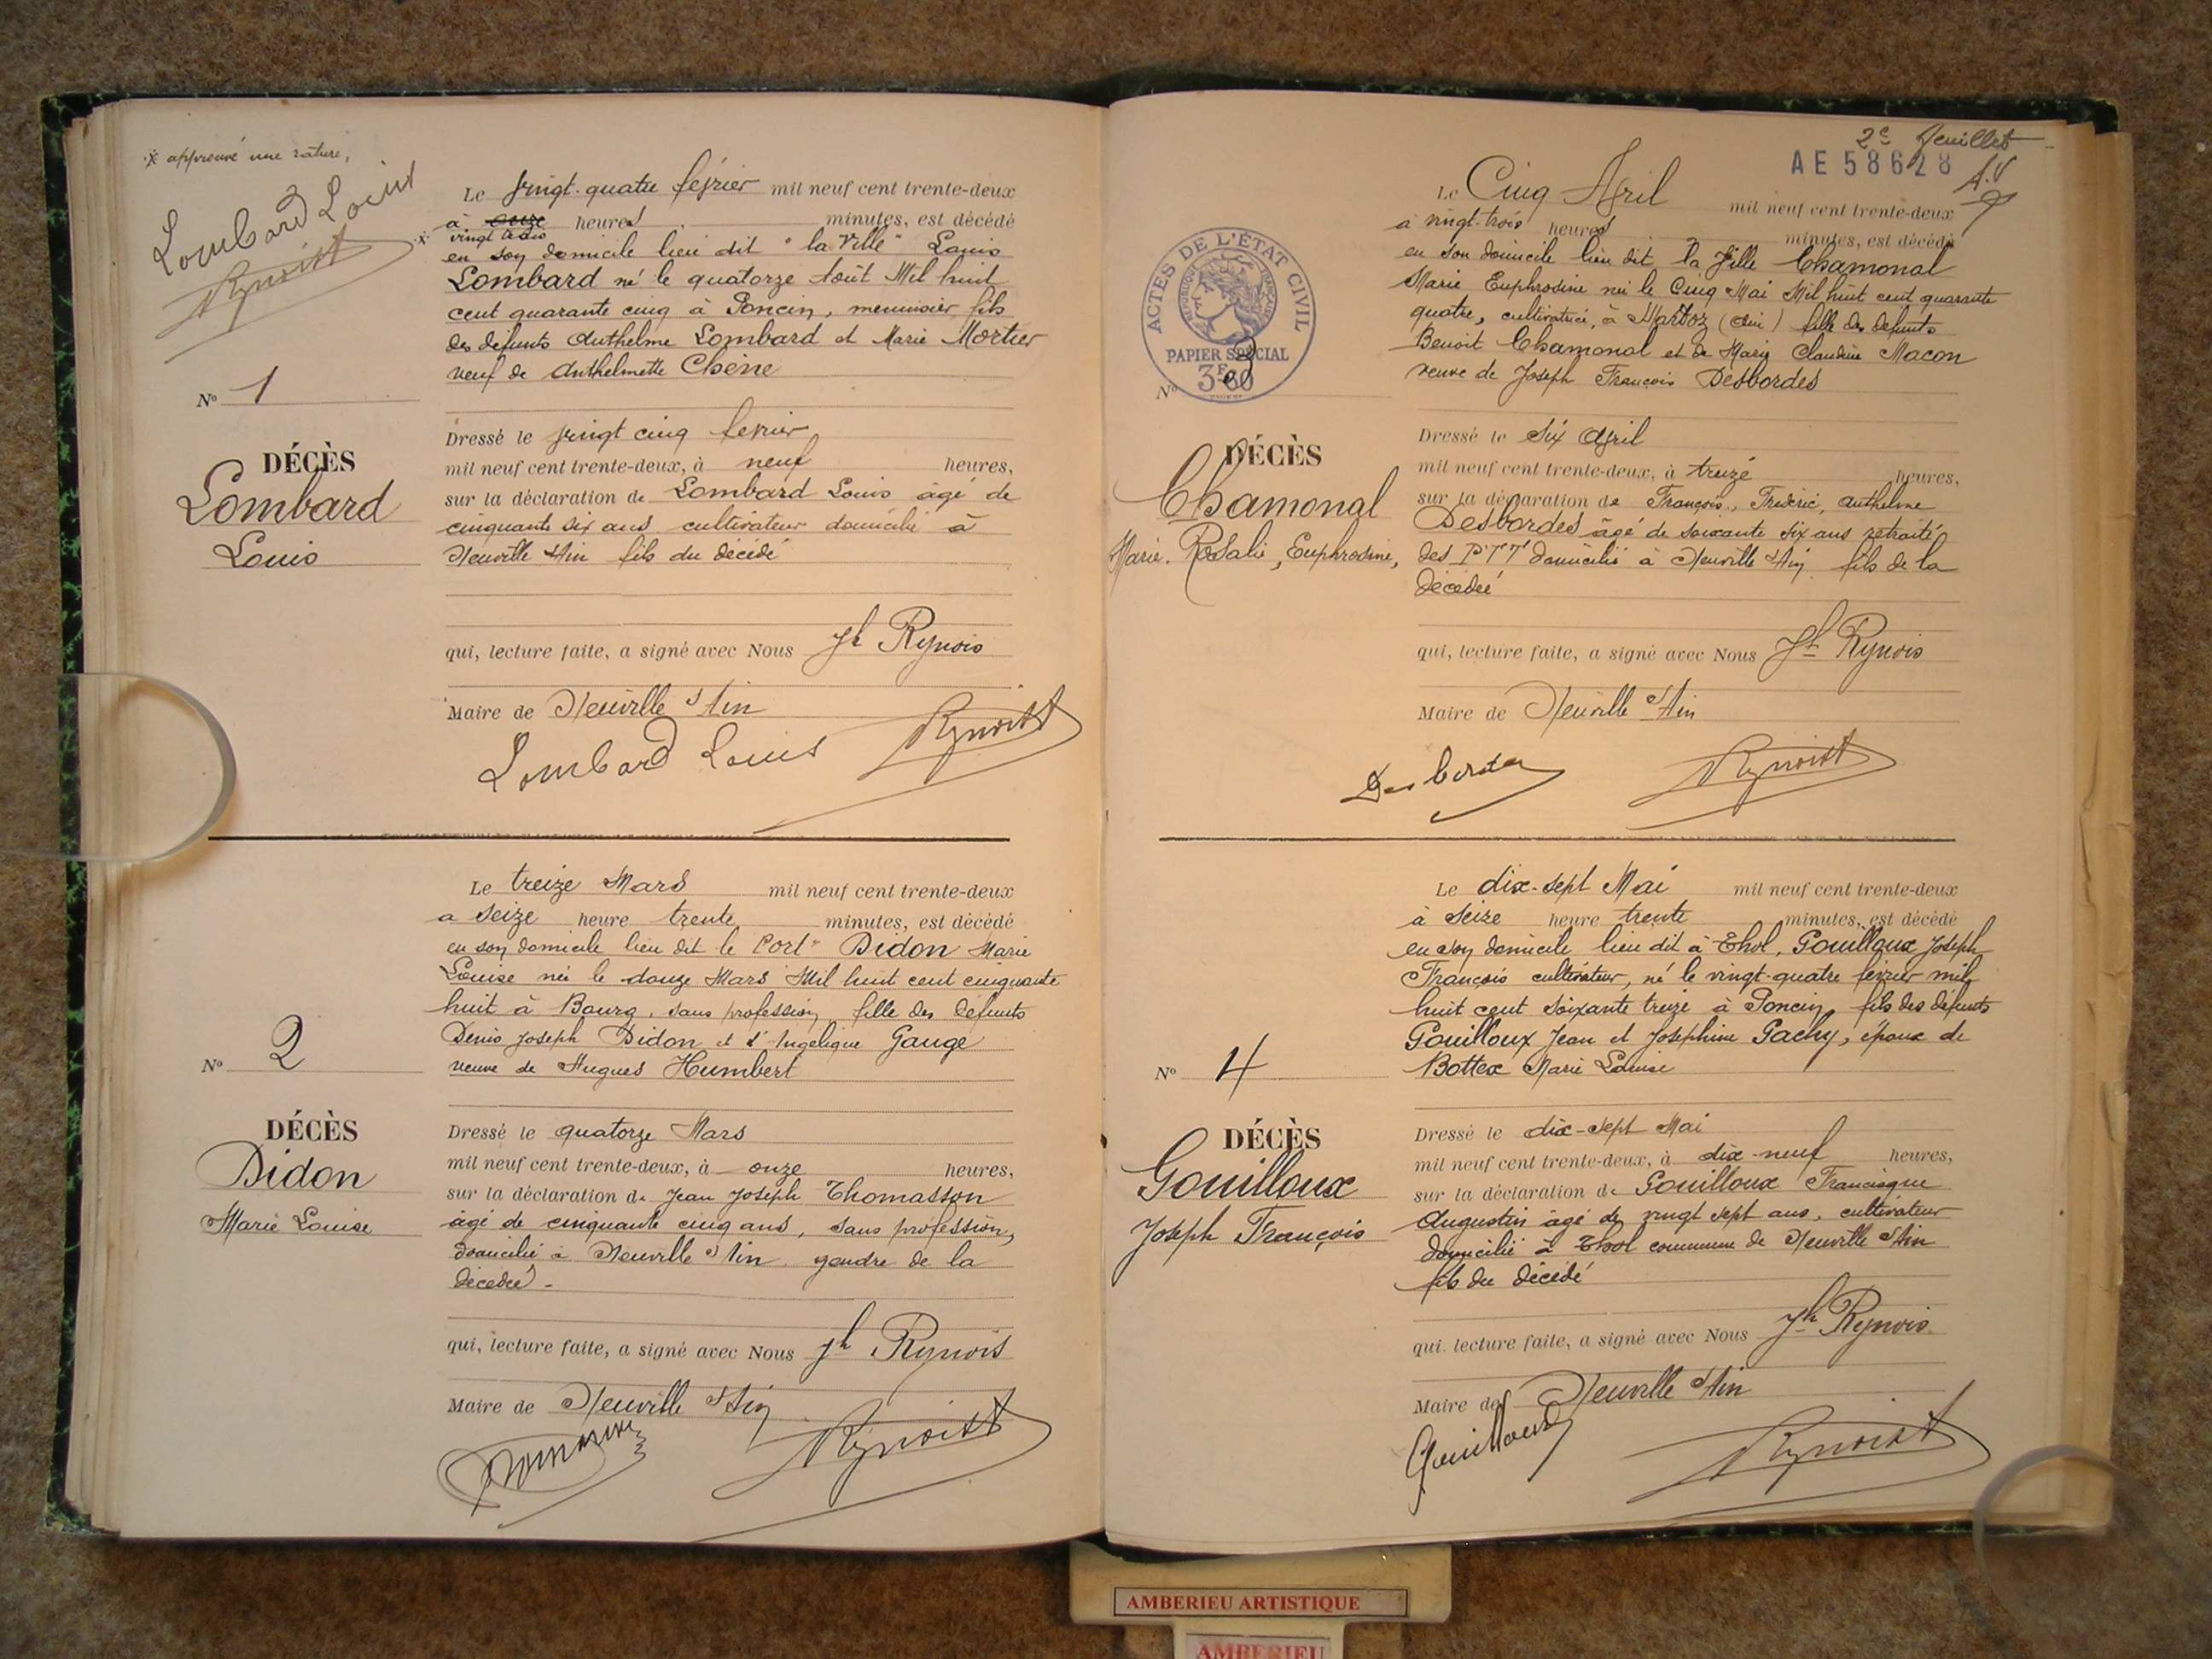 x approuvé une rature,
Lombard Louis
Rynois
Le vingt-quatre février mil neuf cent trente-deux
à onze heures minutes, est décédé
x vingt trois
en son domicile lieu dit "la Ville" Louis
Lombard né le quatorze Août Mil huit
cent quarante cinq à Poncin, menuisier, fils
des défunts Anthelme Lombard et Marie Mortier
veuf de Anthelmette Chêne
No 1
DÉCÈS
Lombard
Louis
Dressé le vingt cinq février
mil neuf cent trente-deux, à neuf heures,
sur la déclaration de Lombard Louis âgé de
cinquante six ans cultivateur domicilié à
Neuville s/Ain fils du décédé
qui, lecture faite, a signé avec Nous Jh Rynois
Maire de Neuville s/Ain
Lombard Louis Rynois
Le treize Mars mil neuf cent trente-deux
a seize heure trente minutes, est décédé
en son domicile lieu dit le Port" Didon Marie
Louise née le douze Mars Mil huit cent cinquante
huit à Bourg, sans profession fille des défunts
Denis Joseph Didon et d'Angélique Gauge
veuve de Hugues Humbert
No 2
DÉCÈS
Didon
Marie Louise
Dressé le quatorze Mars
mil neuf cent trente-deux, à onze heures,
sur la déclaration de Jean Joseph Thomasson
âgé de cinquante cinq ans, sans profession,
domicilié à Neuville s/Ain gendre de la
décédée -
qui, lecture faite, a signé avec Nous Jh Rynois
Maire de Neuville s/Ain
Rynois
2e Feuillet
AE 58628
Le Cinq Avril mil neuf cent trente-deux
à vingt-trois heures minutes, est décédé
en son domicile lieu dit la Ville Chamonal
Marie Euphrosine née le Cinq Mai Mil huit cent quarante
quatre, cultivatrice, à (Ain) fille des défunts
Benoit Chamonal et de Marie Claudine Macon
veuve de Joseph François Desbordes
ACTES DE L'ÉTAT CIVIL
RÉPUBLIQUE FRANÇAISE
PAPIER SPÉCIAL
3F60
No 3
DÉCÈS
Chamonal
Marie. Rosalie, Euphrosine,
Dressé le Six Avril
mil neuf cent trente-deux, à treize heures,
sur la déclaration de François, Fréderic, Anthelme
Desbordes âgé de soixante six ans retraité
des PTT domicilié à Neuville s/Ain fils de la
décédée
qui, lecture faite, a signé avec Nous Jh Rynois
Maire de Neuville s/Ain
Desbordes Rynois
Le dix-sept Mai mil neuf cent trente-deux
à seize heure trente minutes, est décédé
en son domicile lieu dit à Thol, Gouilloux Joseph
François cultivateur, né le vingt-quatre février mil
huit cent soixante treize à Poncin, fils des défunts
Gouilloux Jean et Joséphine Pachy, époux de
Bottex Marie Louise
No 4
DÉCÈS
Gouilloux
Joseph François
Dressé le dix-sept Mai
mil neuf cent trente-deux, à dix-neuf heures,
sur la déclaration de Gouilloux Francisque
Augustin âgé de vingt sept ans, cultivateur
domicilié à Thol commune de Neuville s/Ain
fils du décédé
qui. lecture faite, a signé avec Nous Jh Rynois
Maire de Neuville s/Ain
Gouilloux Rynois
AMBERIEU ARTISTIQUE
AMBERIEU